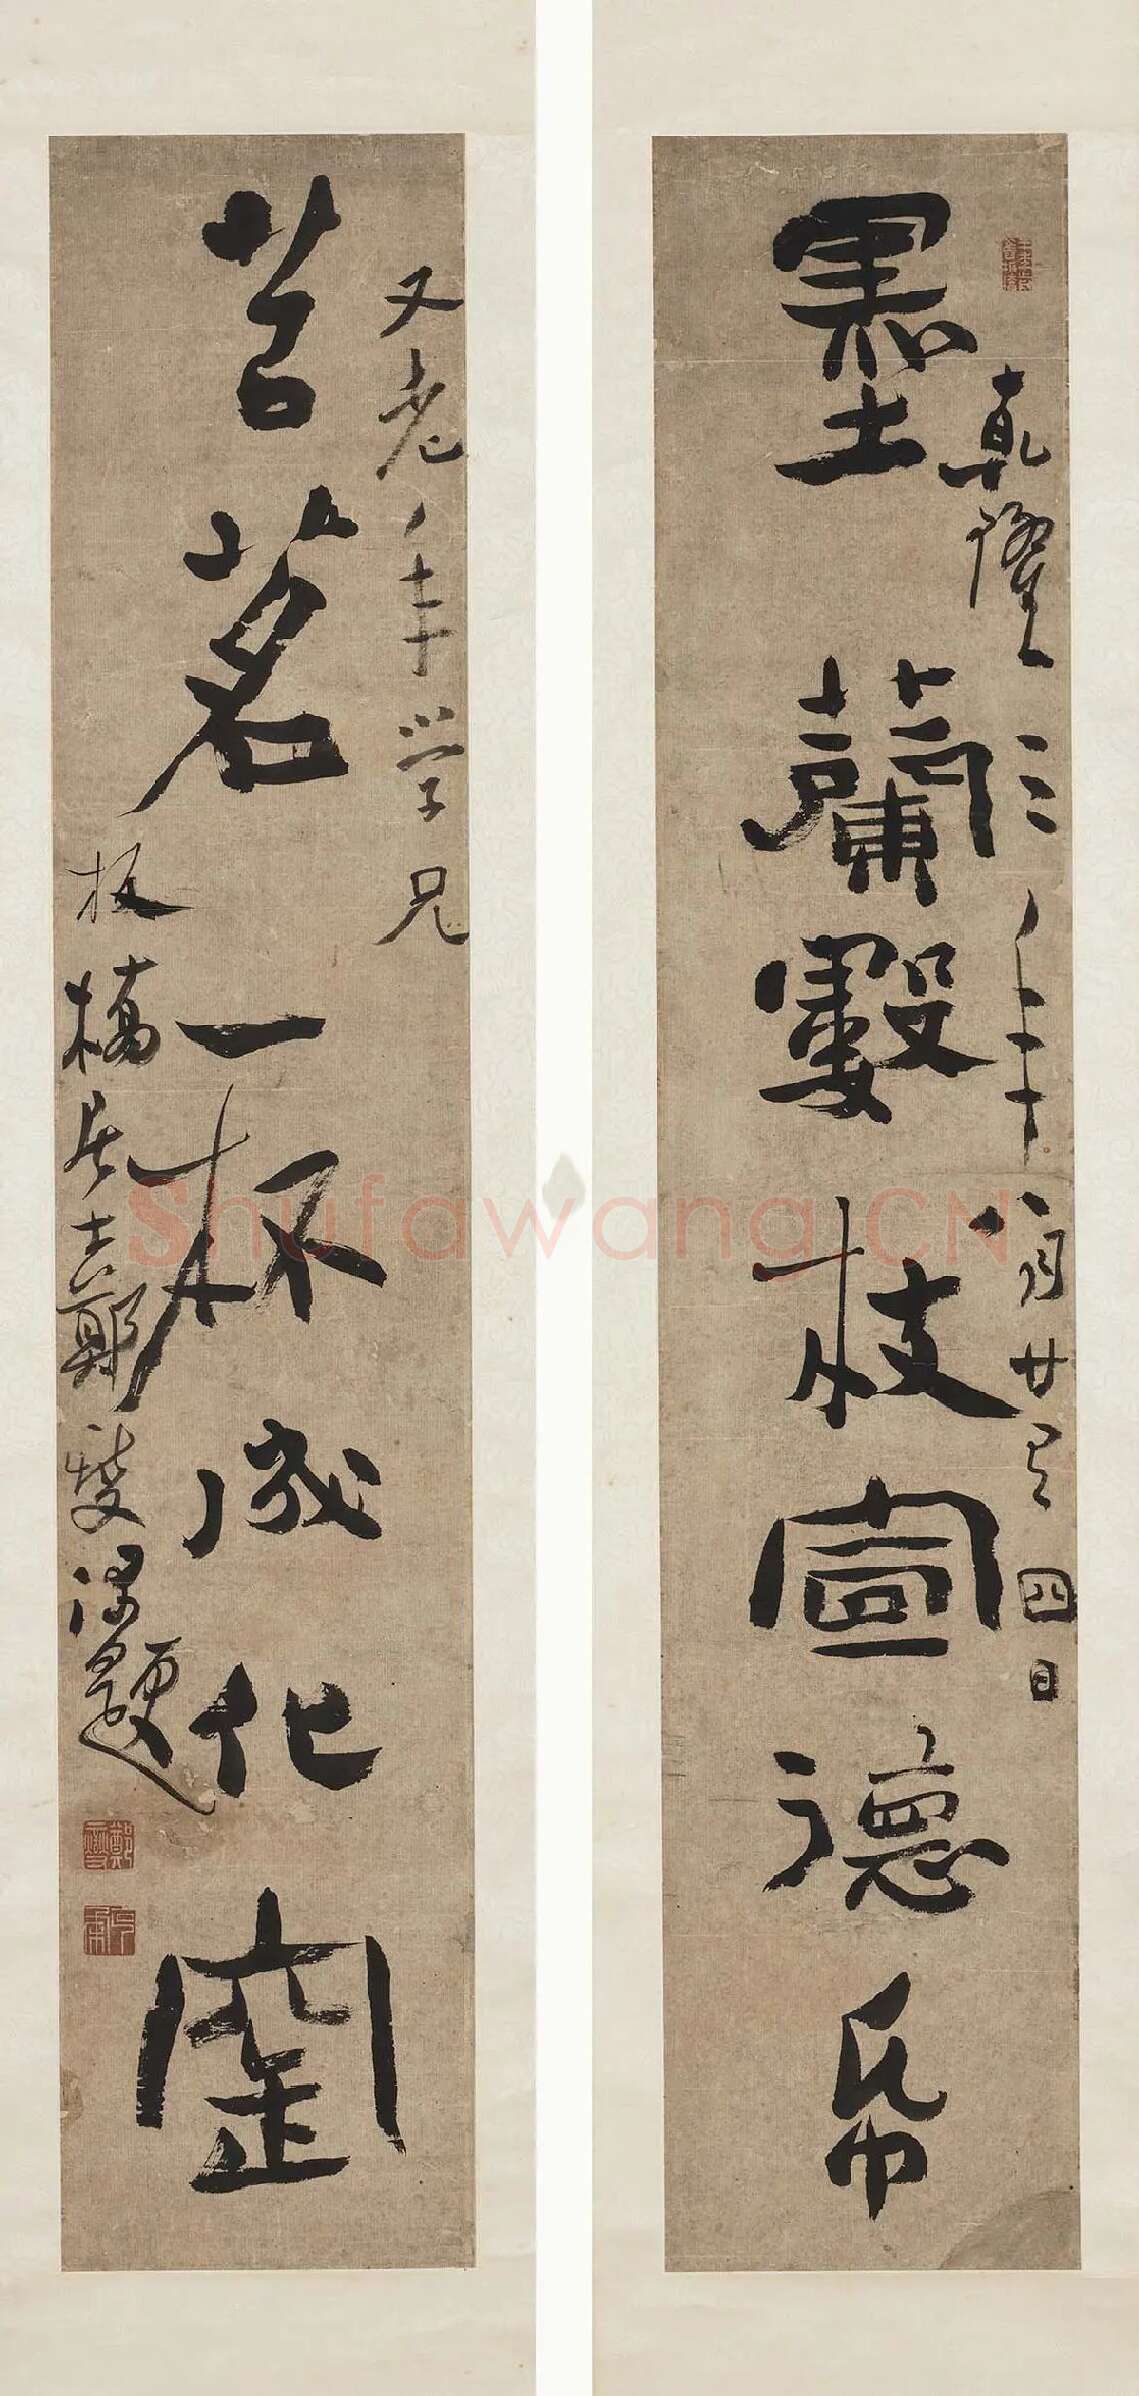 乾隆三年八月廿有四日
墨蘭數枝宣德帋
又老年学兄
苦茗一杯成化窑
板橋居士鄭燮漫題
Shufawang.CN